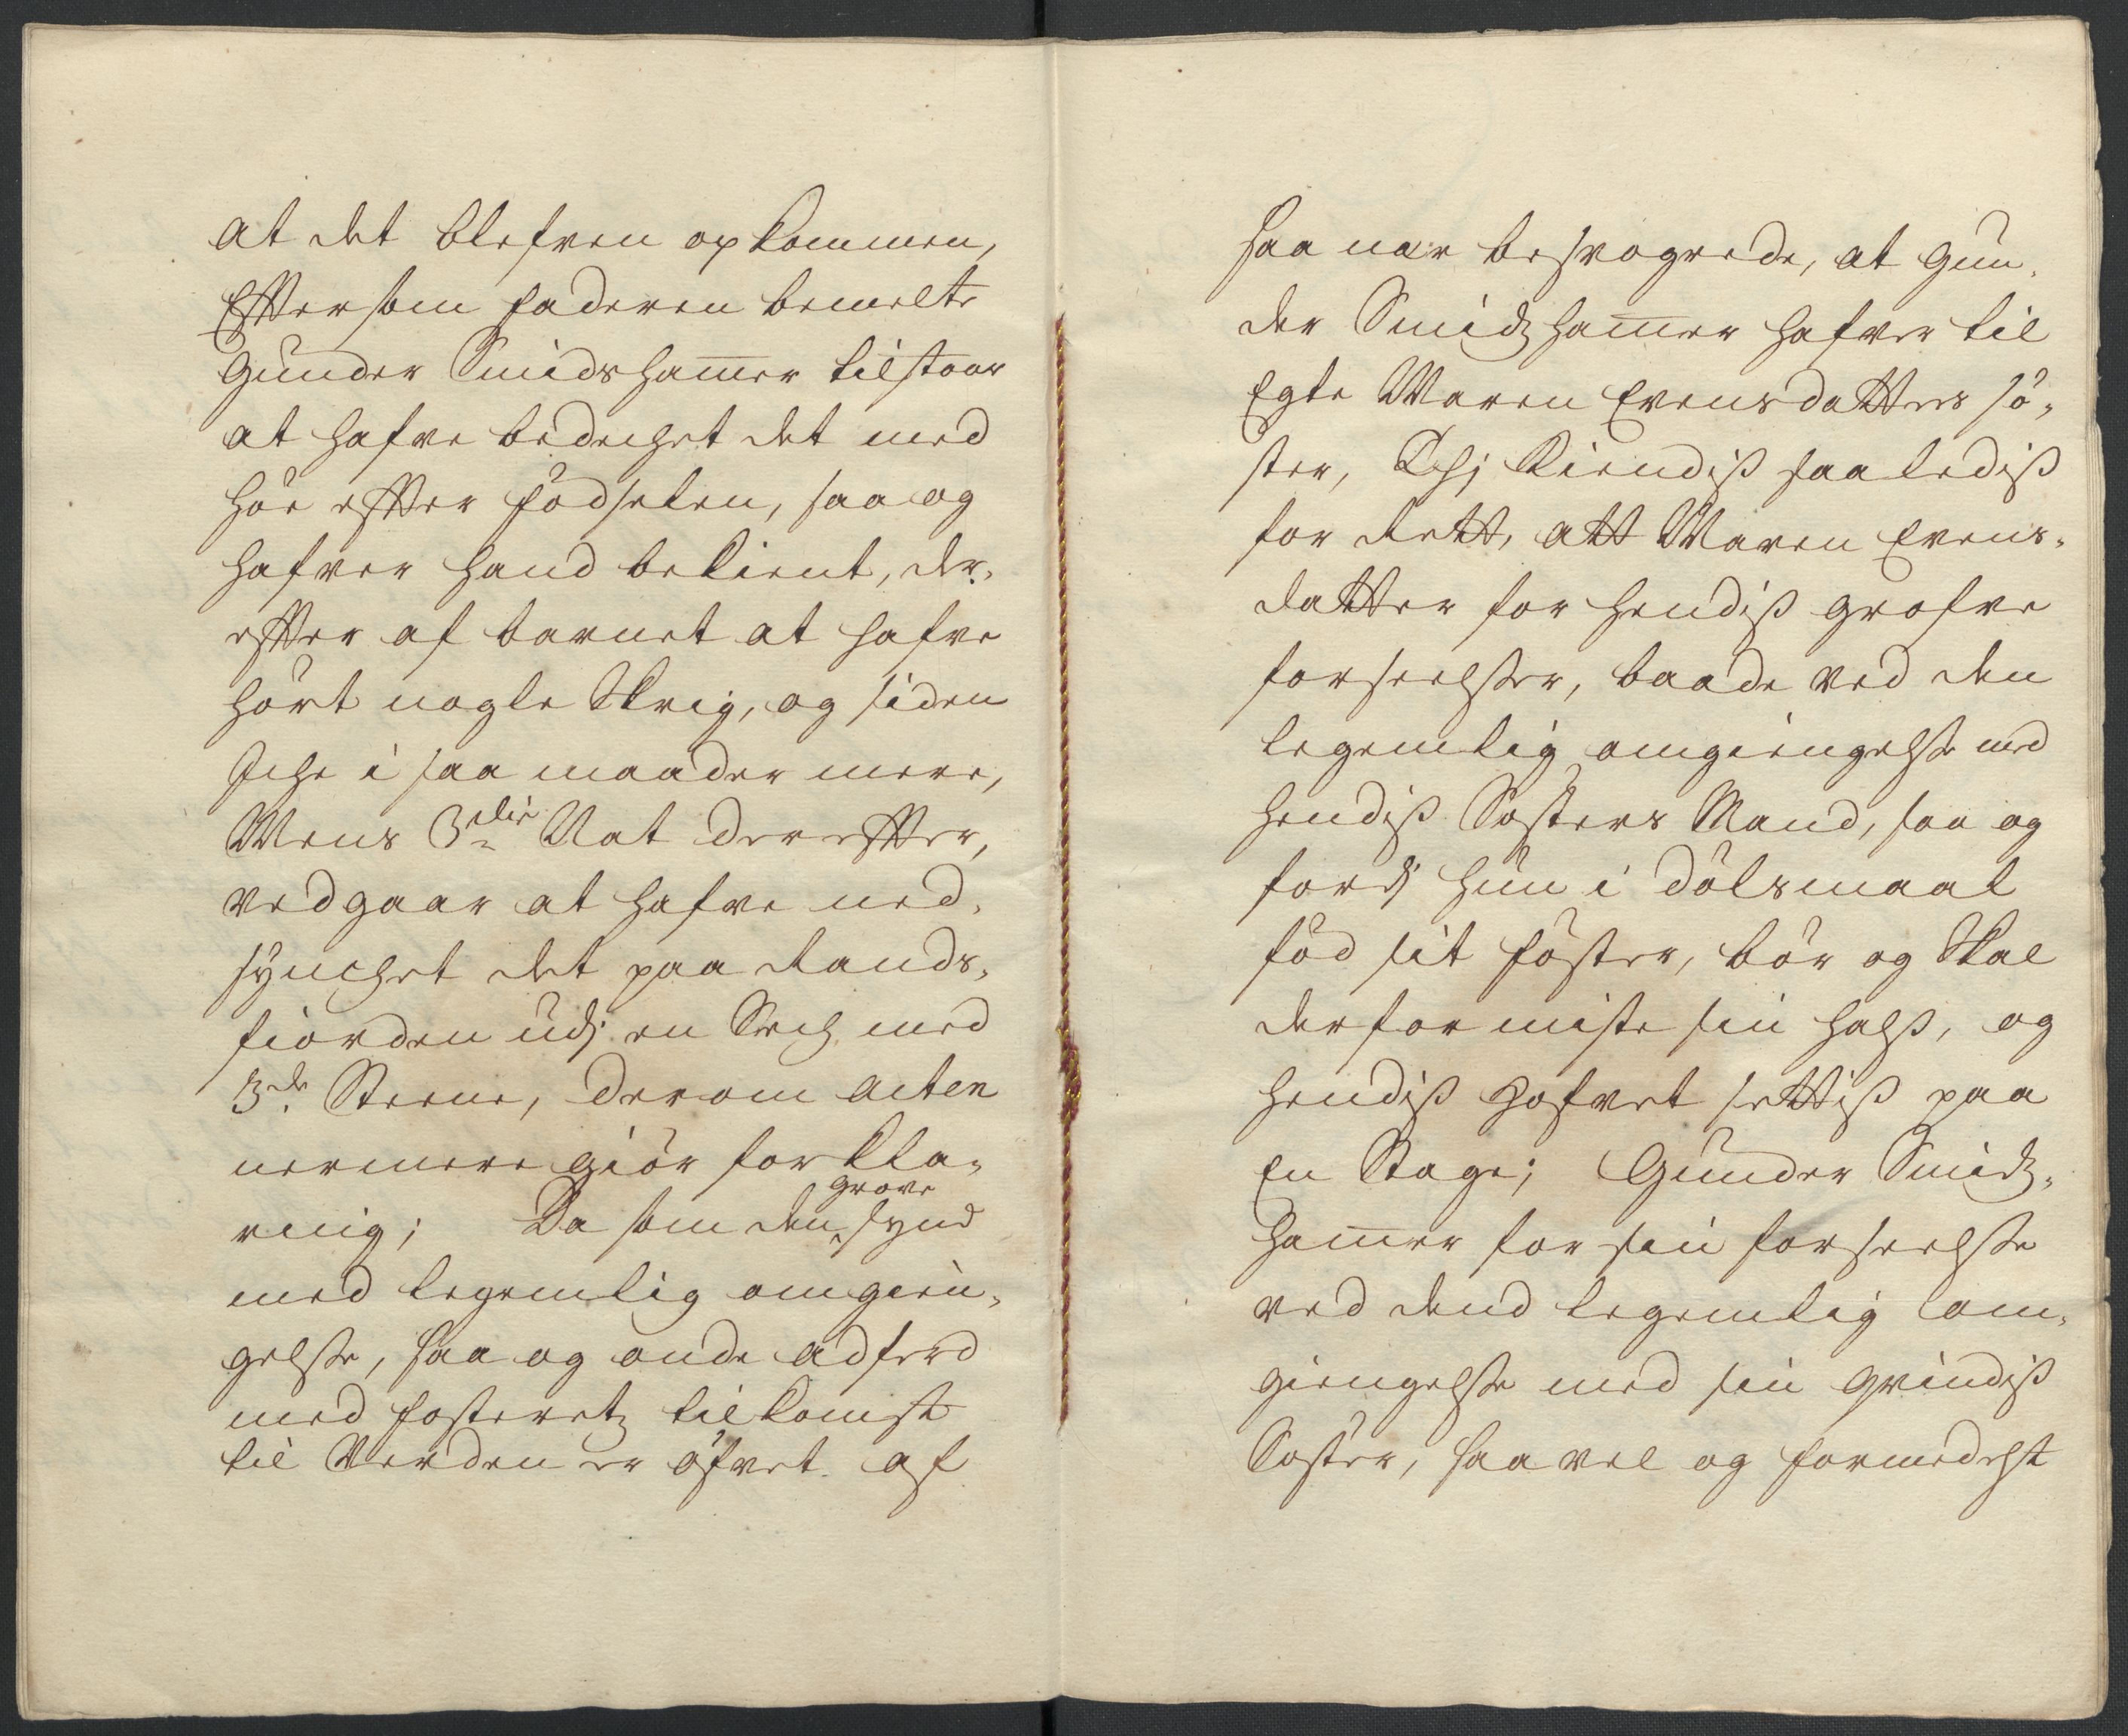 at det blefven opkommen,
Efftersom faderen bemelte
Gunder Smidshamer tilstaar
at hafve bedechet det med
höe effter födselen, saa og
hafver hand bekient, der,
effter af barnet at hafve
hört nogle Skrig, og siden
Iche i saa maader mere,
Mens 3die Nat dereffter,
vedgaar at hafve ned,
synchet det paa Lands,
fiorden udj en Sech med
3de Steene, derom acten
nermere giör forkla,
ring; Da som den grove synd
med legemlig omgien,
gelsse, saa og onde adferd
med fosteretz tilkomst
til Verden er öfvet af
saa nær besvogrede, at Gun,
der Smidzhamer hafver til
Egte Maren Evensdatters sö,
ster, Thj kiendis saaledis
for Rett, att Maren Evens,
datter for hendis grofve
forseelsser, baade ved den
legemlig omgiengelsse med
hendis Sösters Mand, saa og
fordj hun i dölsmaal
föd sit föster, bör og Skal
derfor miste sin hals, og
hendis Hofvet settis paa
En Stage; Gunder Smidz,
hamer for sin forseelsse
ved dend legemlig om,
giengelsse med sin qvindis
Söster, saavel og formedelst